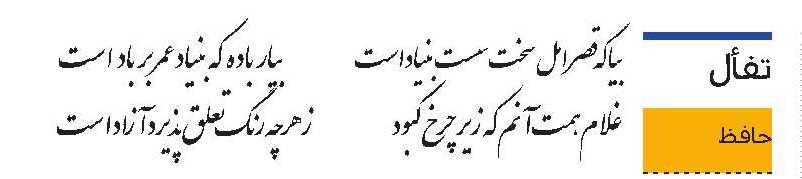 تفأل
حافظ
بیا که قصر امل سخت سست بنیاد است
بیار باده که بنیاد عمر بر باد است
غلام همت آنم که زیر چرخ کبود
ز هر چه رنگ تعلق پذیرد آزاد است